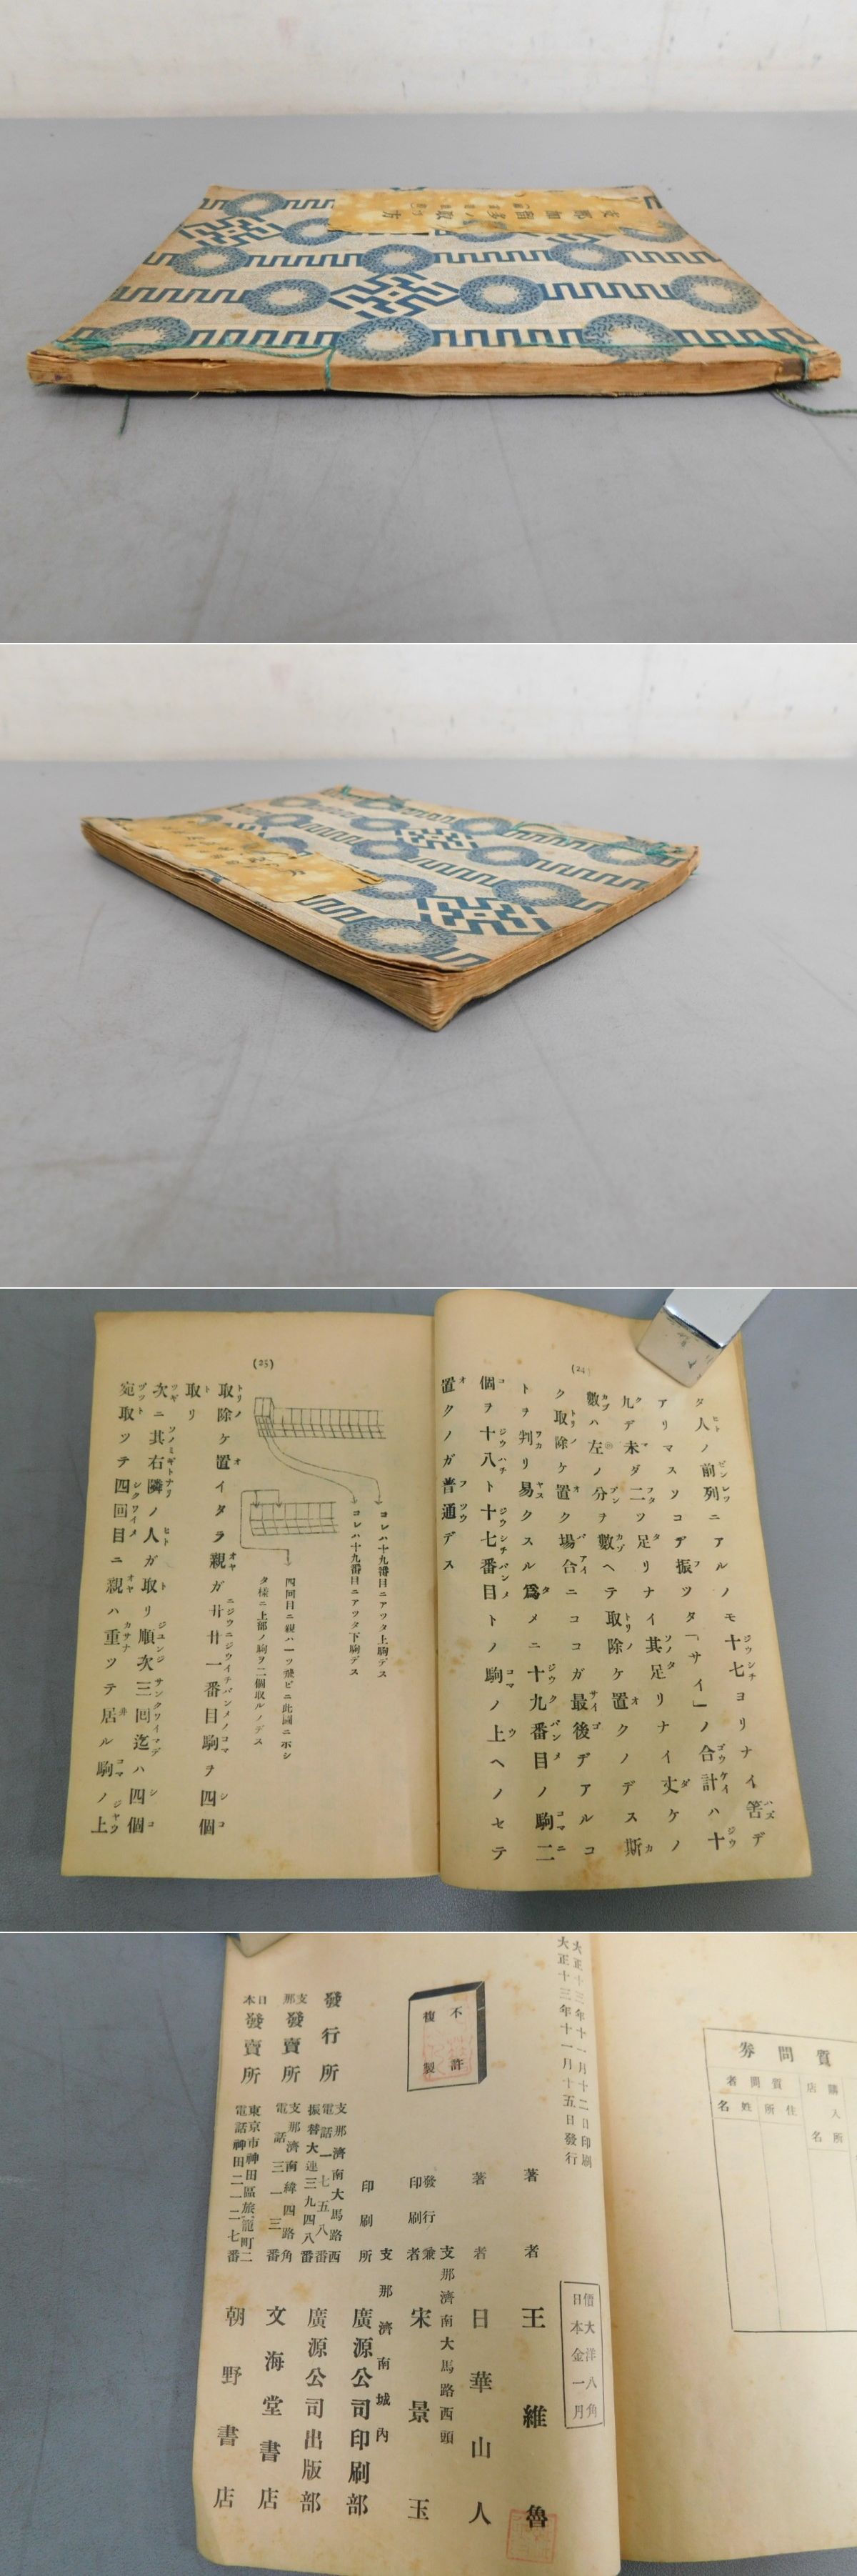 支那加留多ノ取リ方
(24)
タ人ノ前列ニアルノモ十七ヨリナイ筈デ
アリマスソコデ振ツタ「サイ」ノ合計ハ十
九デ未ダ二ツ足リナイ其足リナイ丈ケノ
數ハ左ノ分ヲ數ヘテ取除ケ置クノデス斯
ク取除ケ置ク場合ニココガ最後デアルコ
トヲ判リ易クスル爲メニ十九番目ノ駒二
個ヲ十八ト十七番目トノ駒ノ上ヘノセテ
置クノガ普通デス
(25)
コレハ十九番目ニアツタ上駒デス
コレハ十九番目ニアツタ下駒デス
四回目ニ親ハ一ツ飛ビニ此圖ニ示シ
タ樣ニ上部ノ駒ヲ二個取ルノデス
取除ケ置イタラ親ガ廿廿一番目駒ヲ四個
取リ
次ニ其右隣ノ人ガ取リ順次三囘迄ハ四個
宛取ツテ四回目ニ親ハ重ツテ居ル駒ノ上
質問券
購入店名所
質問者
住所
姓名
大正十三年十一月十二日印刷
大正十三年十一月十五日發行
價大洋八角
日本金一円
不許
複製
著者 王維魯
著者 日華山人
支那濟南大馬路西頭
發行兼
印刷者 宋景玉
支那濟南城內
印刷所 廣源公司印刷部
發行所
支那濟南大馬路西
電話一七五八番
振替大連三九四八番
廣源公司出版部
支那
發賣所
支那濟南緯四路角
電話三一三番
文海堂書店
日本
發賣所
東京市神田區旅籠町二
電話神田二一二七番
朝野書店